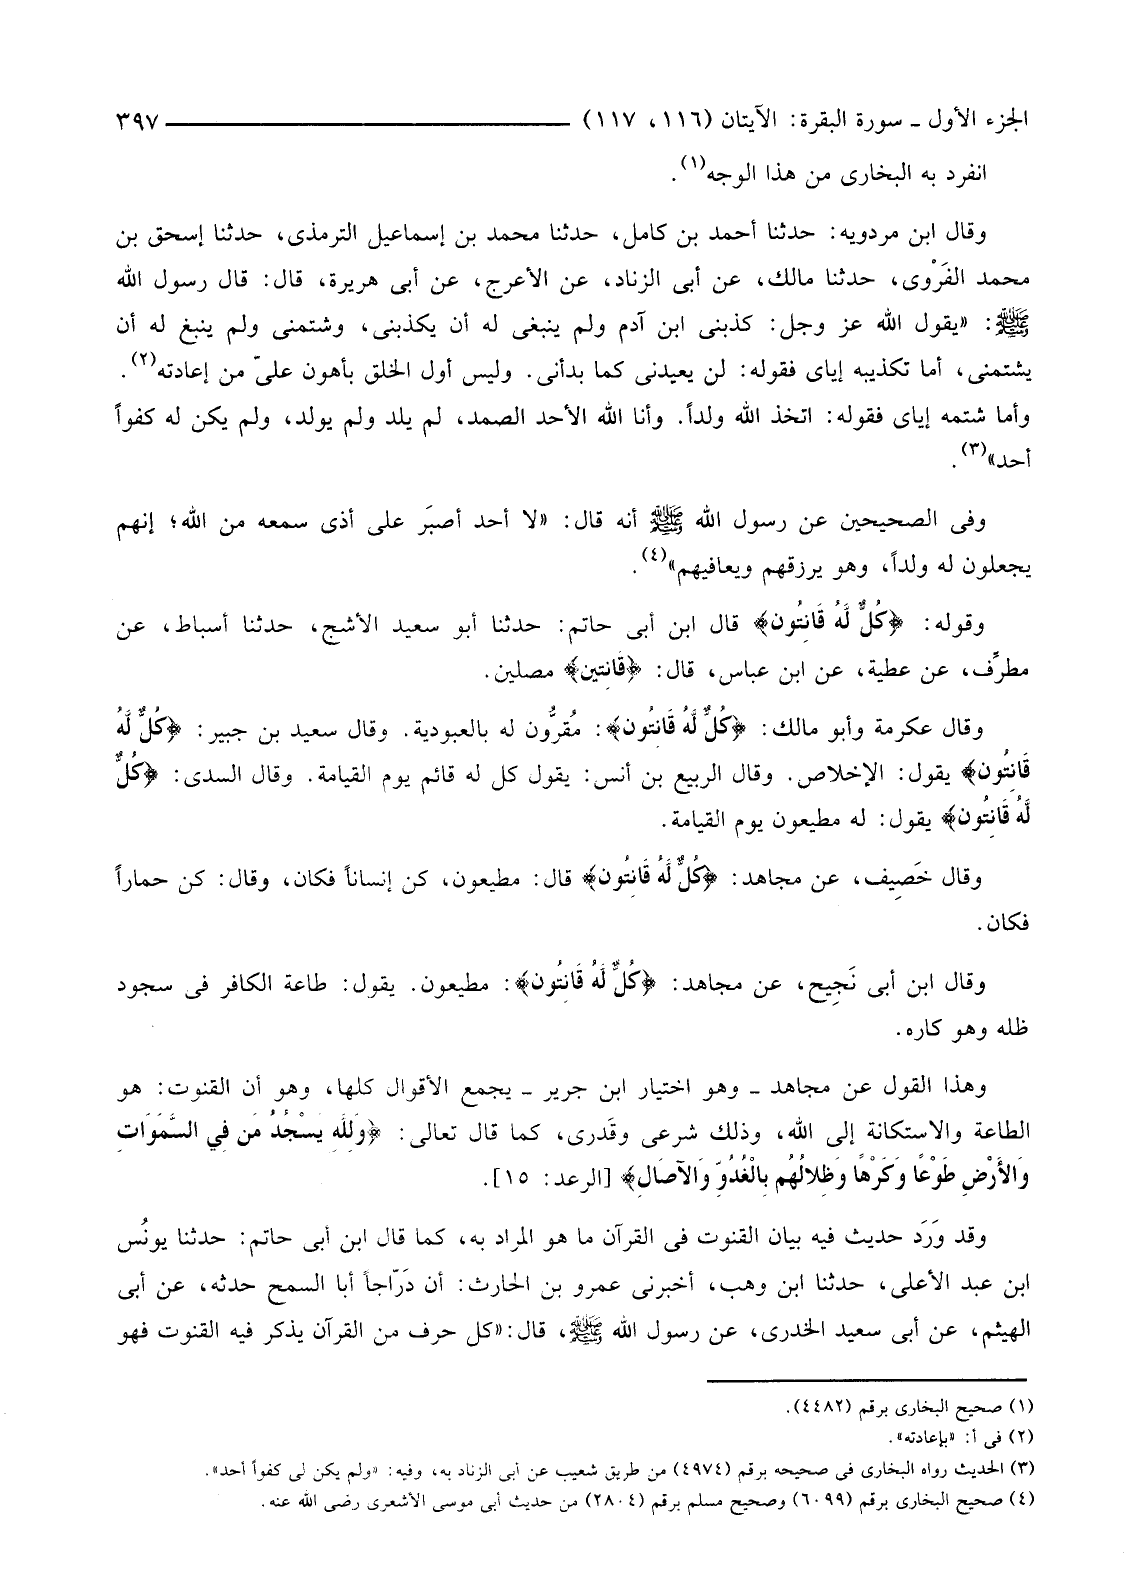 الجزء الأول ـ سورة البقرة: الآيتان (١١٦، ١١٧) ٣٩٧
انفرد به البخارى من هذا الوجه(١).
وقال ابن مردويه: حدثنا أحمد بن كامل، حدثنا محمد بن إسماعيل الترمذى، حدثنا إسحق بن
محمد الفَرْوى، حدثنا مالك، عن أبى الزناد، عن الأعرج، عن أبى هريرة، قال: قال رسول الله
ﷺ: «يقول الله عز وجل: كذبنى ابن آدم ولم ينبغى له أن يكذبنى، وشتمنى ولم ينبغ له أن
يشتمنى، أما تكذيبه إياى فقوله: لن يعيدنى كما بدأنى. وليس أول الخلق بأهون علىّ من إعادته(٢).
وأما شتمه إياى فقوله: اتخذ الله ولداً. وأنا الله الأحد الصمد، لم يلد ولم يولد، ولم يكن له كفواً
أحد»(٣).
وفى الصحيحين عن رسول الله ﷺ أنه قال: «لا أحد أصبَر على أذى سمعه من الله؛ إنهم
يجعلون له ولداً، وهو يرزقهم ويعافيهم»(٤).
وقوله: ﴿كُلٌّ لَّهُ قَانِتُون﴾ قال ابن أبى حاتم: حدثنا أبو سعيد الأشج، حدثنا أسباط، عن
مطرِّف، عن عطية، عن ابن عباس، قال: ﴿قَانِتين﴾ مصلين.
وقال عكرمة وأبو مالك: ﴿كُلٌّ لَّهُ قَانِتُون﴾: مُقرُّون له بالعبودية. وقال سعيد بن جبير: ﴿كُلٌّ لَّهُ
قَانِتُون﴾ يقول: الإخلاص. وقال الربيع بن أنس: يقول كل له قائم يوم القيامة. وقال السدى: ﴿كُلٌّ
لَّهُ قَانِتُون﴾ يقول: له مطيعون يوم القيامة.
وقال خَصِيف، عن مجاهد: ﴿كُلٌّ لَّهُ قَانِتُون﴾ قال: مطيعون، كن إنساناً فكان، وقال: كن حماراً
فكان.
وقال ابن أبى نَجِيح، عن مجاهد: ﴿كُلٌّ لَّهُ قَانِتُون﴾: مطيعون. يقول: طاعة الكافر فى سجود
ظله وهو كاره.
وهذا القول عن مجاهد ـ وهو اختيار ابن جرير ـ يجمع الأقوال كلها، وهو أن القنوت: هو
الطاعة والاستكانة إلى الله، وذلك شرعى وقَدرى، كما قال تعالى: ﴿وَلِلَّهِ يَسْجُدُ مَن فِي السَّمَوَاتِ
وَالأَرْضِ طَوْعًا وَكَرْهًا وَظِلالُهُم بِالْغُدُوِّ وَالآصَالِ﴾ [الرعد: ١٥].
وقد وَرَدَ حديث فيه بيان القنوت فى القرآن ما هو المراد به، كما قال ابن أبى حاتم: حدثنا يونُس
ابن عبد الأعلى، حدثنا ابن وهب، أخبرنى عمرو بن الحارث: أن دَرّاجاً أبا السمح حدثه، عن أبى
الهيثم، عن أبى سعيد الخدرى، عن رسول الله ﷺ، قال:«كل حرف من القرآن يذكر فيه القنوت فهو
(١) صحيح البخارى برقم (٤٤٨٢).
(٢) فى أ: «بإعادته».
(٣) الحديث رواه البخارى فى صحيحه برقم (٤٩٧٤) من طريق شعيب عن أبى الزناد به، وفيه: «ولم يكن لى كفواً أحد».
(٤) صحيح البخارى برقم (٦٠٩٩) وصحيح مسلم برقم (٢٨٠٤) من حديث أبى موسى الأشعرى رضى الله عنه.